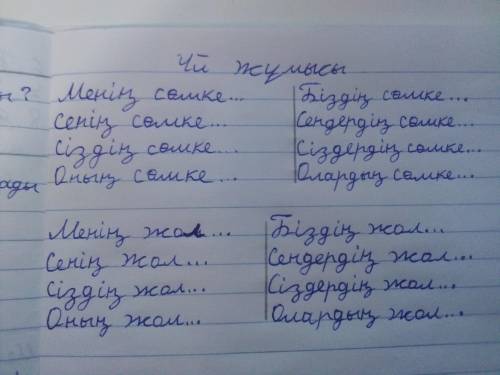 Үй жұмысы
н?
Менің сөмке... Біздің сөмке...
Сенің сөмке... Сендердің сөмке...
Сіздің сөмке... Сіздердің сөмке...
ады
Оның сөмке... Олардың сөмке...
Менің жол... Біздің жол...
Сенің жол... Сендердің жол...
Сіздің жол... Сіздердің жол...
Оның жол... Олардың жол...